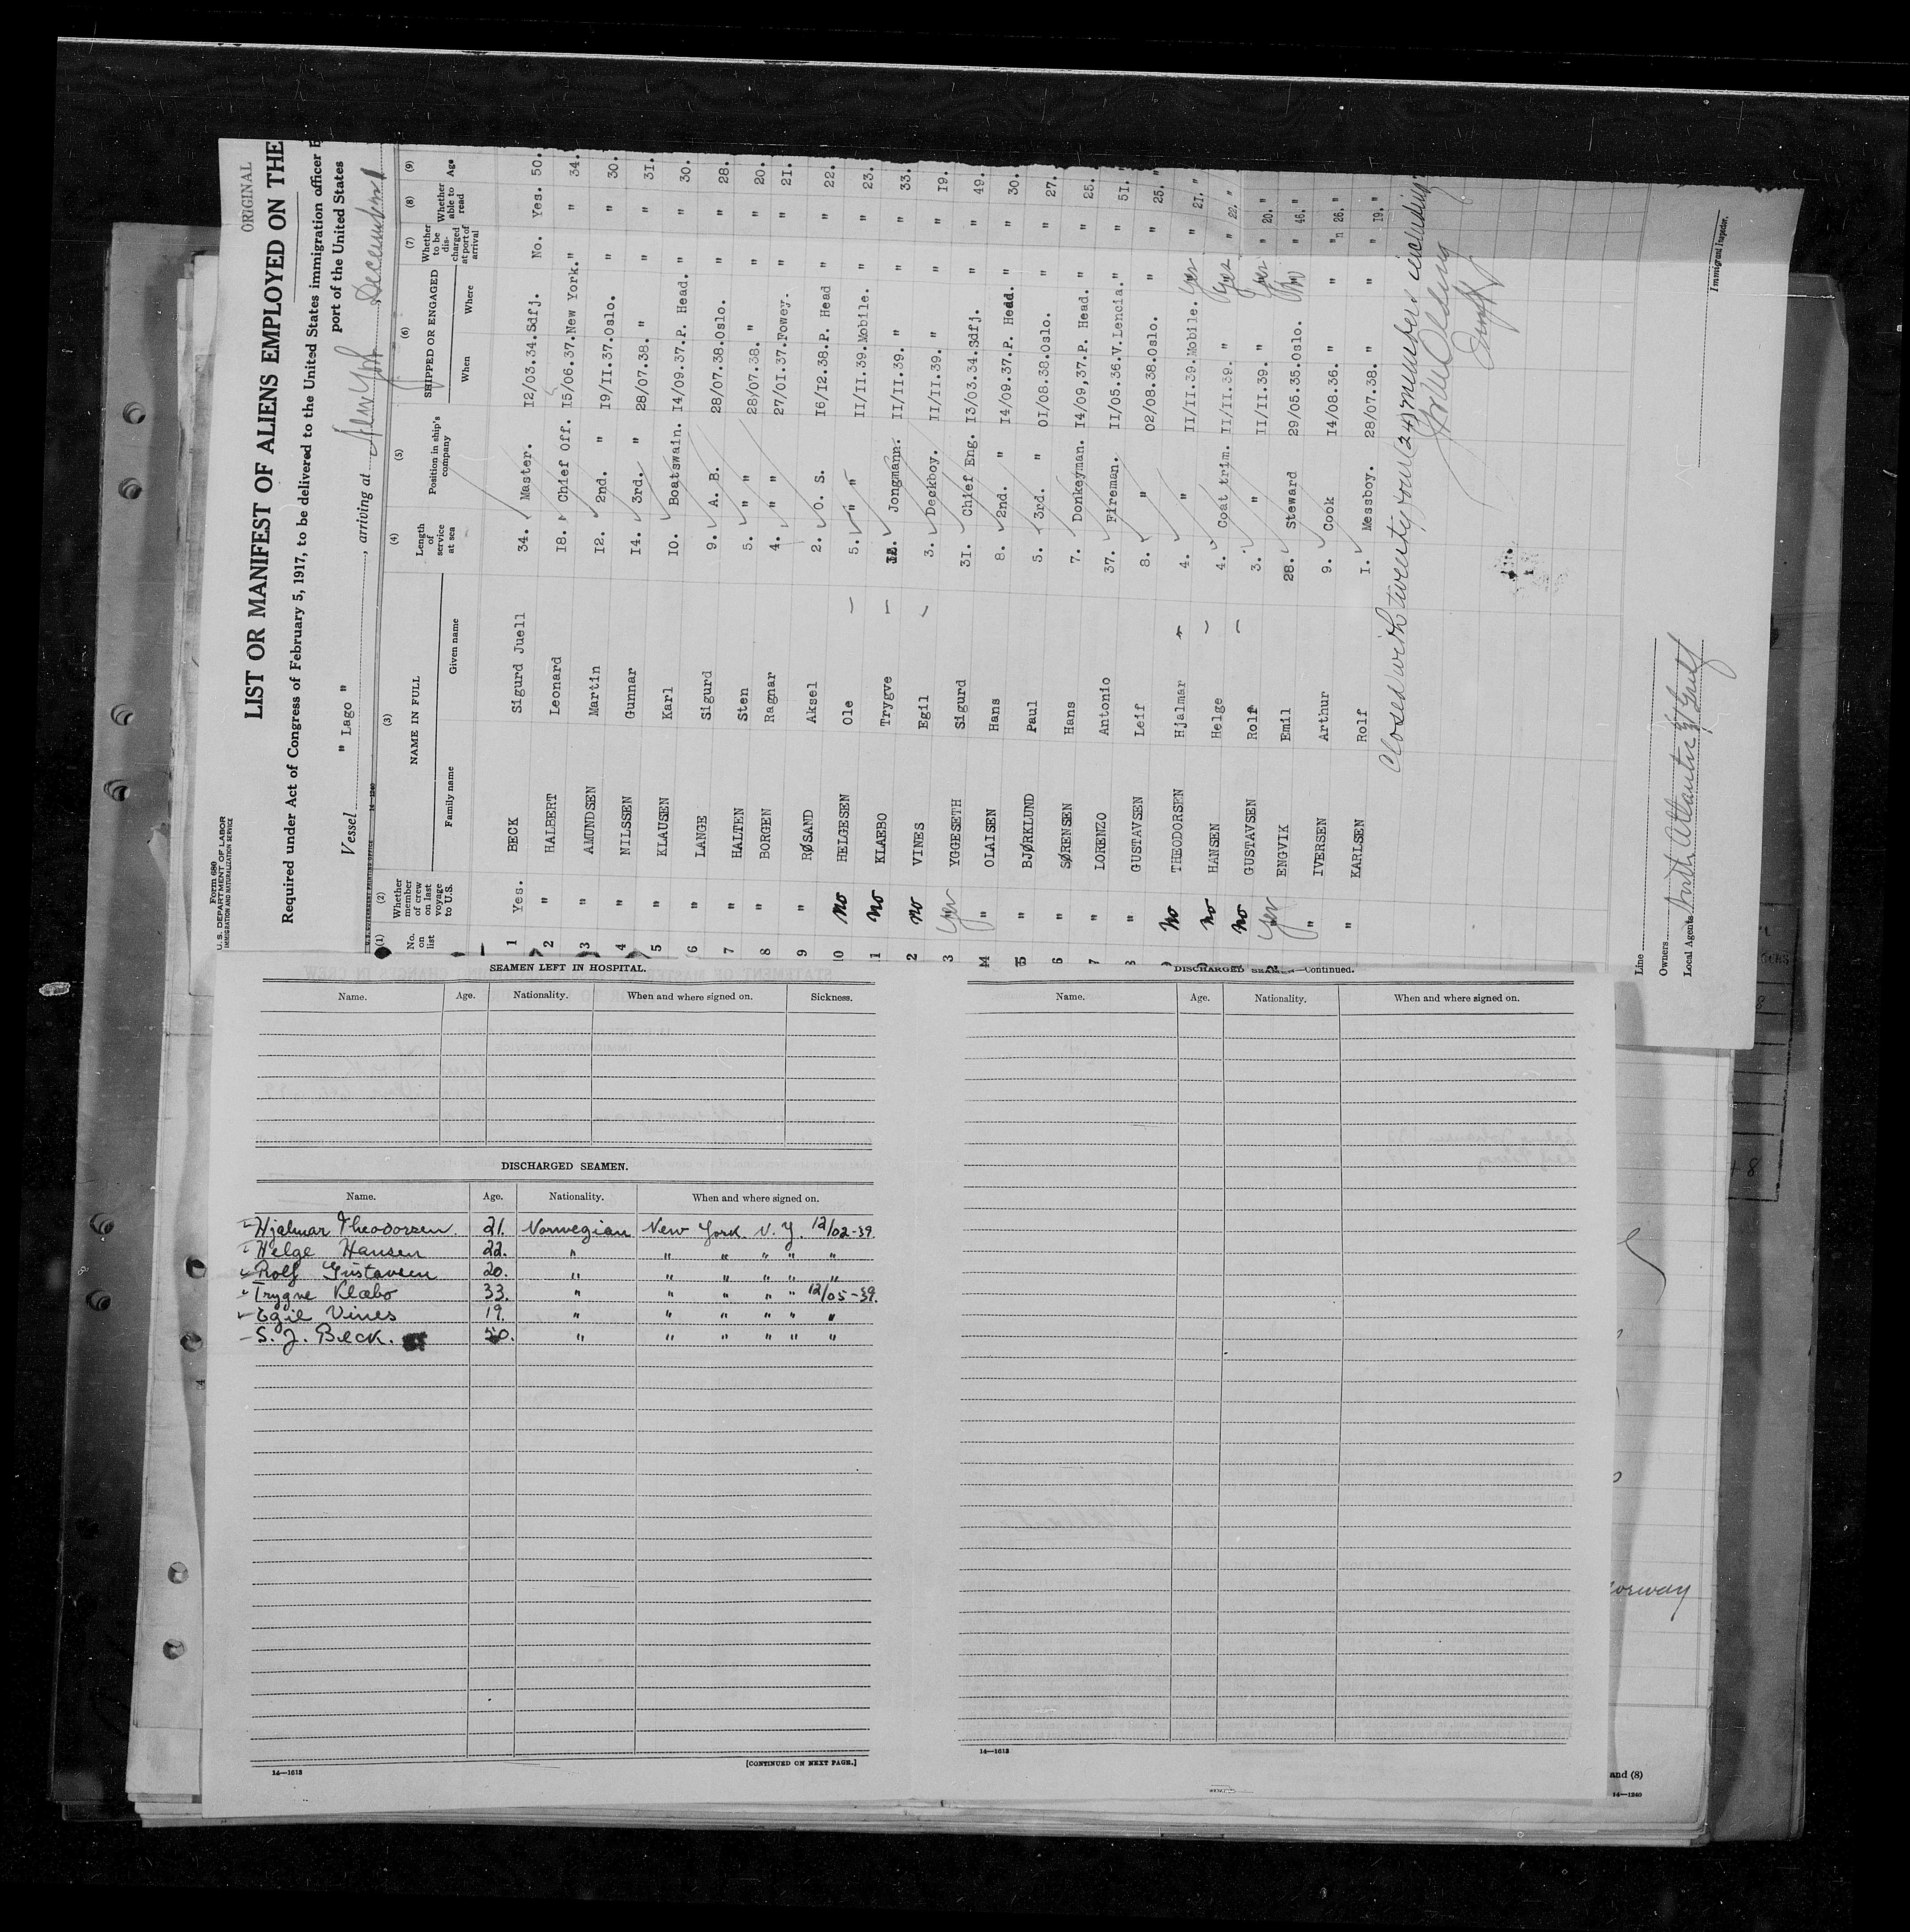 ORIGINAL
Form 680
U. S. DEPARTMENT OF LABOR
IMMIGRATION AND NATURALIZATION SERVICE
LIST OR MANIFEST OF ALIENS EMPLOYED ON THE
Required under Act of Congress of February 5, 1917, to be delivered to the United States immigration officer
port of the United States
Vessel " Lago " , arriving at New York December 1
14—1240
(1) No. on list (2) Whether member of crew on last voyage to U.S. (3) NAME IN FULL Family name Given name (4) Length of service at sea (5) Position in ship's company (6) SHIPPED OR ENGAGED When Where (7) Whether to be discharged at port of arrival (8) Whether able to read (9) Age
1 Yes. BECK Sigurd Juell 34. Master. 12/03.34. Sdfj. No. Yes. 50.
2 " HALBERT Leonard 18. Chief Off. 15/06.37. New York. " " 34.
3 " AMUNDSEN Martin 12. 2nd. " 19/11.37. Oslo. " " 30.
4 " NILSSEN Gunnar 14. 3rd. " 28/07.38. " " " 31.
5 " KLAUSEN Karl 10. Boatswain. 14/09.37. P. Head. " " 30.
6 " LANGE Sigurd 9. A. B. 28/07.38. Oslo. " " 28.
7 " HALTEN Sten 5. " " 28/07.38. " " " 20.
8 " BORGEN Ragnar 4. " " 27/01.37. Fowey. " " 21.
9 " RØSAND Aksel 2. O. S. 16/12.38. P. Head " " 22.
10 no HELGESEN Ole — 5. " " 11/11.39. Mobile. " " 23.
11 no KLAEBO Trygve — Jongmann. 11/11.39. " " " 33.
2 no VINES Egil — 3. Deckboy. 11/11.39. " " " 19.
3 Yes YGGESETH Sigurd 31. Chief Eng. 13/03.34. Sdfj. " " 49.
14 " OLAISEN Hans 8. 2nd. " 14/09.37. P. Head. " " 30.
15 " BJØRKLUND Paul 5. 3rd. " 01/08.38. Oslo. " " 27.
6 " SØRENSEN Hans 7. Donkeyman. 14/09,37. P. Head. " " 25.
7 " LORENZO Antonio 37. Fireman. 11/05.36. V. Lencia. " " 51.
8 " GUSTAVSEN Leif 8. " 02/08.38. Oslo. " " 25.
no THEODORSEN Hjalmar 4. " 11/11.39. Mobile. Yes " 21.
no HANSEN Helge — 4. Coat trim. 11/11.39. " Yes " 22.
no GUSTAVSEN Rolf — 3. " 11/11.39. " Yes " 20.
Yes ENGVIK Emil 28. Steward 29/05.35. Oslo. No " 46.
" IVERSEN Arthur 9. Cook 14/08.36. " " " 26.
" KARLSEN Rolf 1. Messboy. 28/07.38. " " " 19.
Closed with twenty four (24) members including
Line
Owners
Local Agents North Atlantic & Gulf
Immigrant Inspector.
SEAMEN LEFT IN HOSPITAL.
Name. Age. Nationality. When and where signed on. Sickness.
DISCHARGED SEAMEN.
Name. Age. Nationality. When and where signed on.
Hjalmar Theodorsen. 21. Norwegian New York N. Y. 12/02-39.
Helge Hansen 22. " " " " " "
Rolf Gustavsen 20. " " " " " "
Trygve Klæbo 33. " " " " " 12/05-39.
Egil Vines 19. " " " " " "
S. J. Beck. 50. " " " " " "
14—1613
[CONTINUED ON NEXT PAGE.]
DISCHARGED SEAMEN—Continued.
Name. Age. Nationality. When and where signed on.
14—1613
orway
and (8)
14—1240